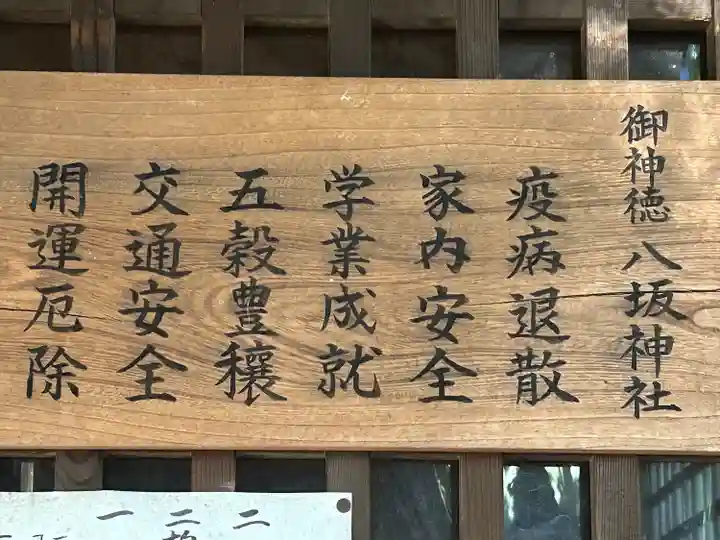 御神徳 八坂神社
疫病退散
家内安全
学業成就
五穀豊穰
交通安全
開運厄除
二
二
一